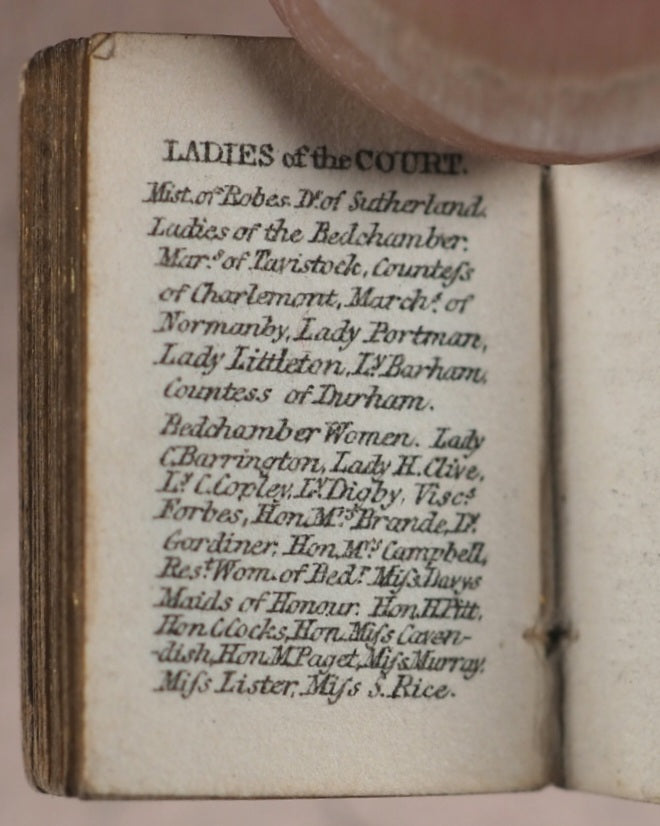 LADIES of the COURT.
Mist. of Robes. Ds. of Sutherland.
Ladies of the Bedchamber.
Mar.s of Tavistock, Counteſs
of Charlemont, March.s of
Normanby, Lady Portman,
Lady Littleton, Ly. Barham,
Countess of Durham.
Bedchamber Women. Lady
C. Barrington, Lady H. Clive,
Ly. C. Copley, Ly. Digby, Visc.s
Forbes, Hon. Mrs. Brande, Ly.
Gardiner, Hon. Mrs. Campbell,
Res.t Wom. of Bed.r Miſs Davys
Maids of Honour. Hon. H. Pitt,
Hon. C. Cocks, Hon. Miſs Caven-
-dish, Hon. M. Paget, Miſs Murray.
Miſs Lister, Miſs S. Rice.